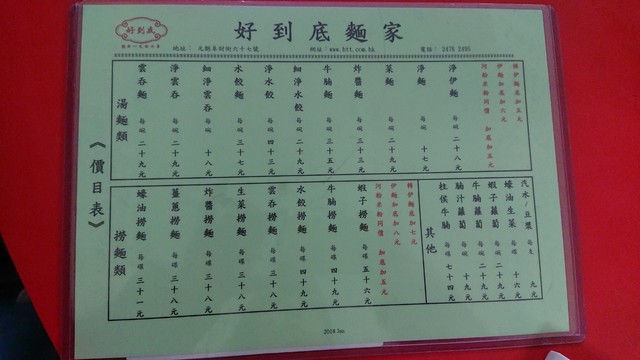 好到底
好到底麵家
地址： 元朗阜財街六十七號
網址：www.htt.com.hk
電話： 2476 2495
《價目表》
湯麵類
雲吞麵 每碗 二十九元
淨雲吞 每碗 二十九元
細淨雲吞 每碗 十八元
水餃麵 每碗 三十七元
淨水餃 每碗 四十三元
細淨水餃 每碗 二十九元
牛腩麵 每碗 三十五元
炸醬麵 每碗 三十三元
菜麵 每碗 二十九元
淨麵 每碗 十七元
淨伊麵 每碗 二十八元
河粉米粉同價 加底加五元
伊麵加底加六元
轉伊麵底加五元
撈麵類
蠔油撈麵 每碟 三十一元
薑蔥撈麵 每碟 三十八元
炸醬撈麵 每碟 三十八元
生菜撈麵 每碟 三十八元
雲吞撈麵 每碟 三十八元
水餃撈麵 每碟 四十九元
牛腩撈麵 每碟 四十九元
蝦子撈麵 每碟 五十六元
河粉米粉同價 加底加五元
伊麵加底加八元
轉伊麵底加七元
其他
柱侯牛腩 每碗 七十四元
腩汁蘿蔔 每碗 十九元
牛腩蘿蔔 每碗 二十九元
蝦子蘿蔔 每碗 二十九元
蠔油生菜 每碟 十六元
汽水/豆漿 每支 九元
2018 Jan